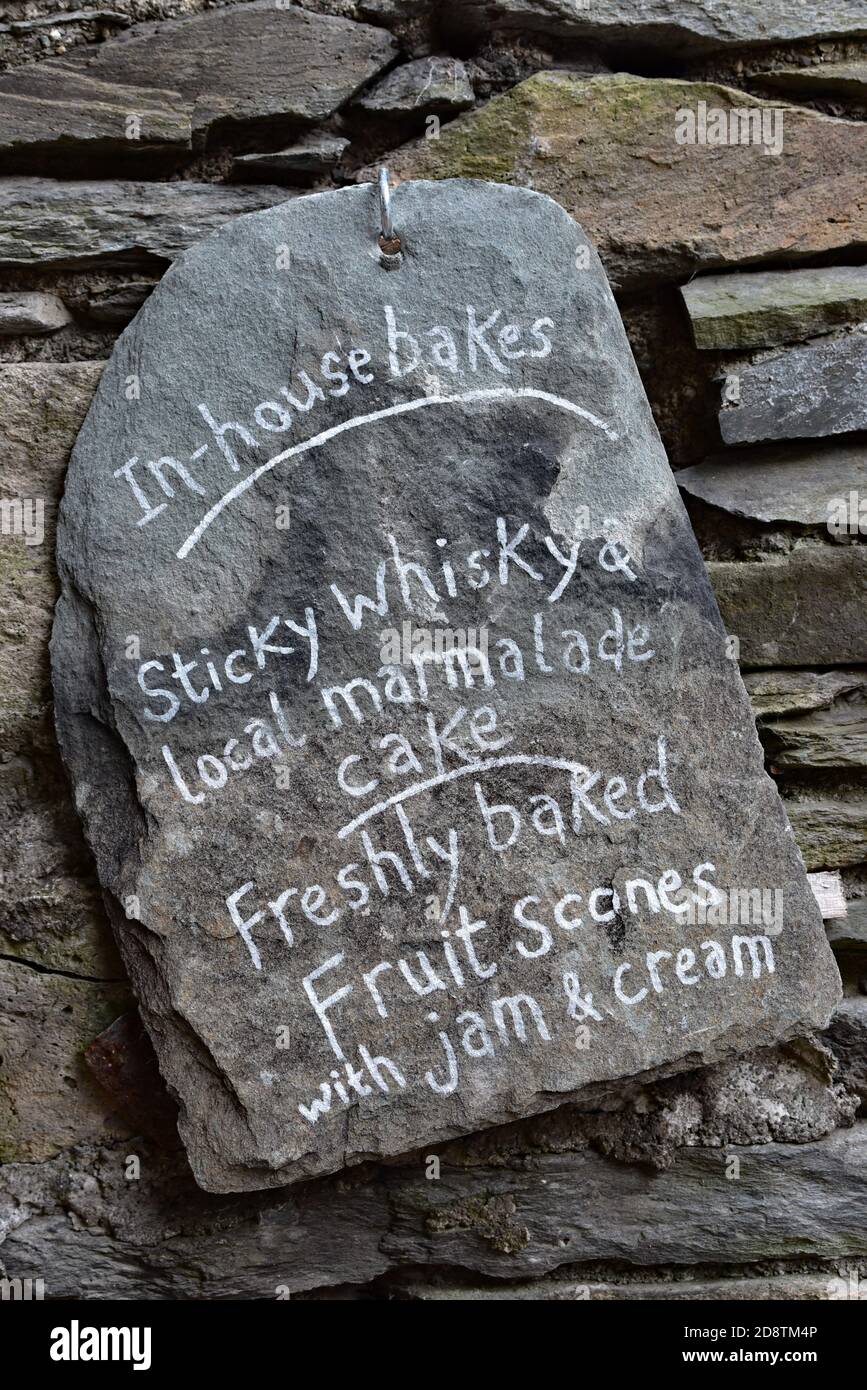 In-house bakes
Sticky whisky &
local marmalade
cake
Freshly baked
Fruit scones
with jam & cream
alamy
Image ID: 2D8TM4P
www.alamy.com